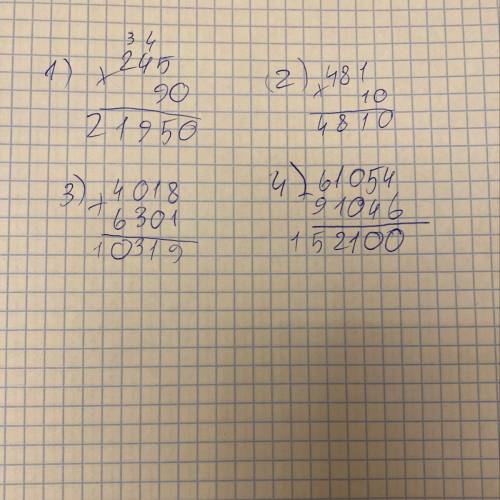 1) 3 4
× 245
90
21950
(2) × 481
10
4810
3) + 4018
6301
10319
4) - 61054
91046
152100